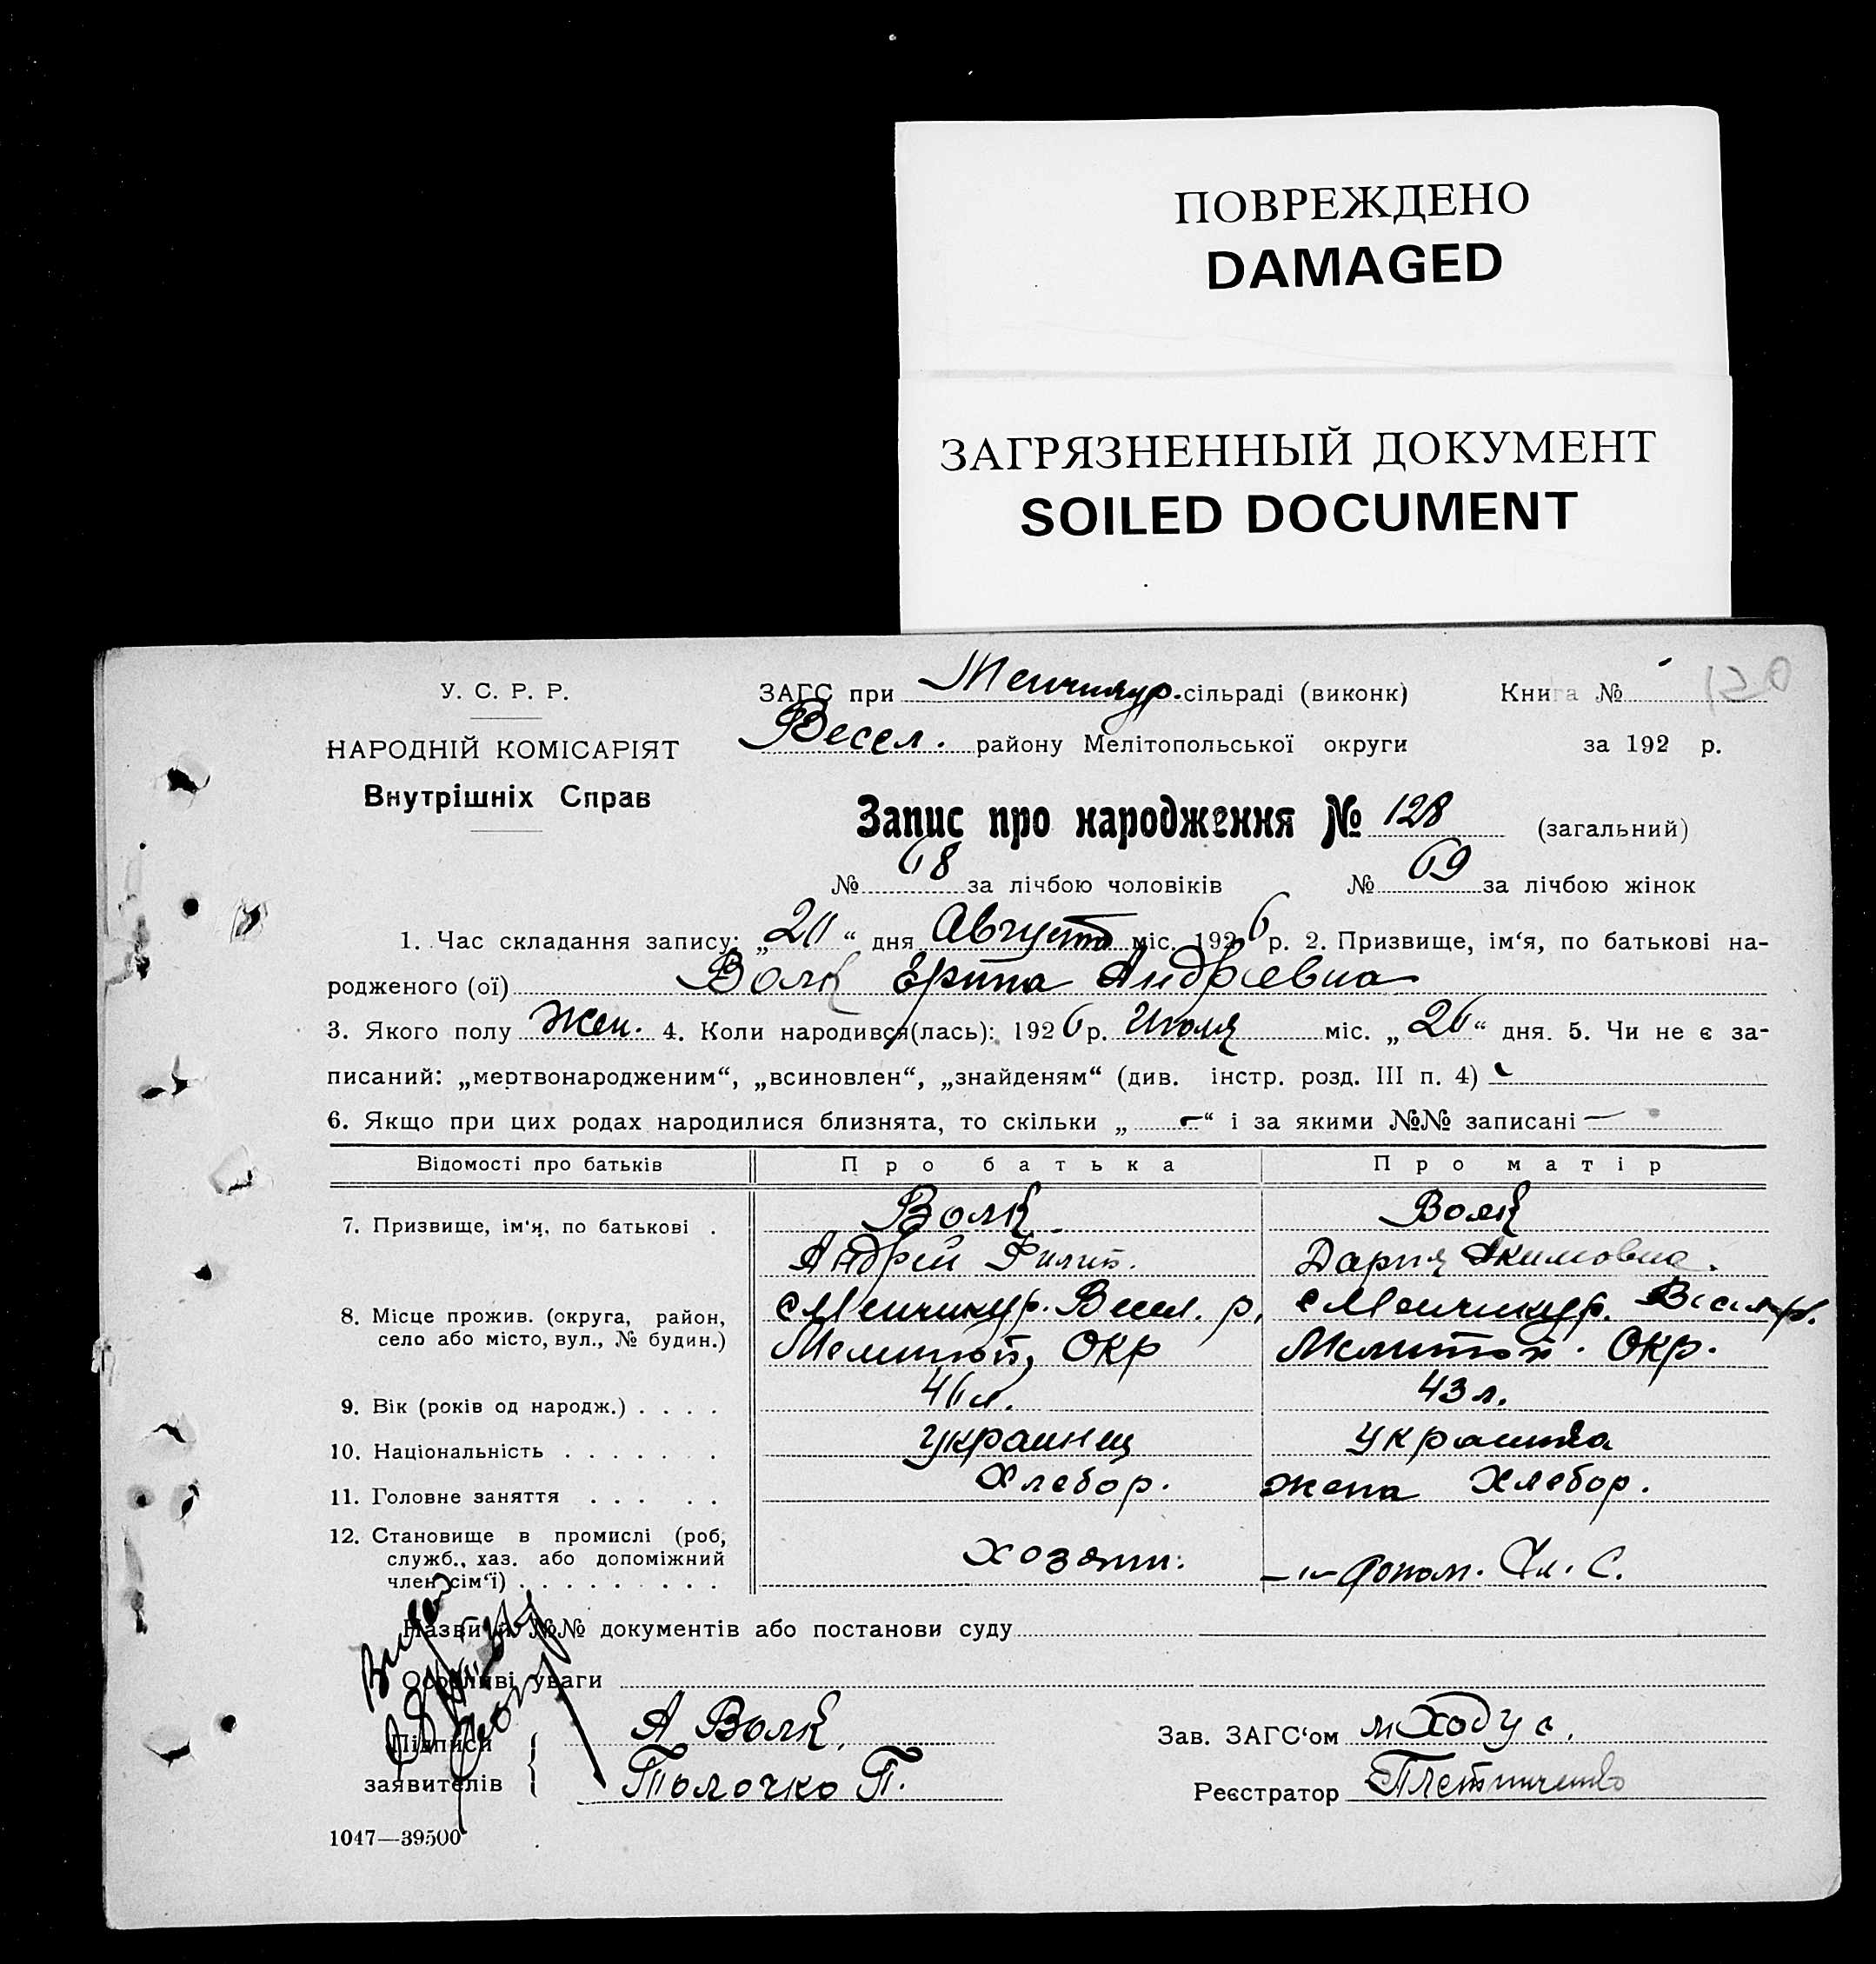 ПОВРЕЖДЕНО
DAMAGED
ЗАГРЯЗНЕННЫЙ ДОКУМЕНТ
SOILED DOCUMENT
У. С. Р. Р. ЗАГС при Менчикур. сільраді (виконк) Книга № 120
НАРОДНІЙ КОМІСАРІЯТ Весел. району Мелітопольської округи за 192 р.
Внутрішніх Справ
Запис про народження № 128 (загальний)
№ 68 за лічбою чоловіків № 69 за лічбою жінок
1. Час складання запису: „20“ дня Августа міс. 1926 р. 2. Призвище, ім‘я, по батькові на-
родженого (ої) Волк Ерина Андреевна
3. Якого полу Жен. 4. Коли народився(лась): 1926 р. Июля міс. „26“ дня. 5. Чи не є за-
писаний: „мертвонародженим“, „всиновлен“, „знайденям“ (див. інстр. розд. III п. 4) -
6. Якщо при цих родах народилися близнята, то скільки „ - “ і за якими №№ записані —
Відомості про батьків Про батька Про матір
7. Призвище, ім‘я, по батькові . Волк Волк
Андрей Филип. Дария Акимовна.
8. Місце прожив. (округа, район, с Менчикур. Весел. р. с Менчикур. Весел. р.
село або місто, вул., № будин.) Мелитоп, Окр Мелитоп. Окр.
9. Вік (років од народж.) . . . . 46 л. 43 л.
10. Національність . . . . . . . украинец украинка
11. Головне заняття . . . . . Хлебор. жена Хлебор.
12. Становище в промислі (роб, хозяин. —„— допом. Чл. С.
служб., хаз. або допоміжний
член сім‘ї) . . . . . . . . .
Назви й №№ документів або постанови суду
Особливі уваги
Підписи А Волк. Зав. ЗАГС‘ом
заявителів Толочко Т. Реєстратор
1047—39500